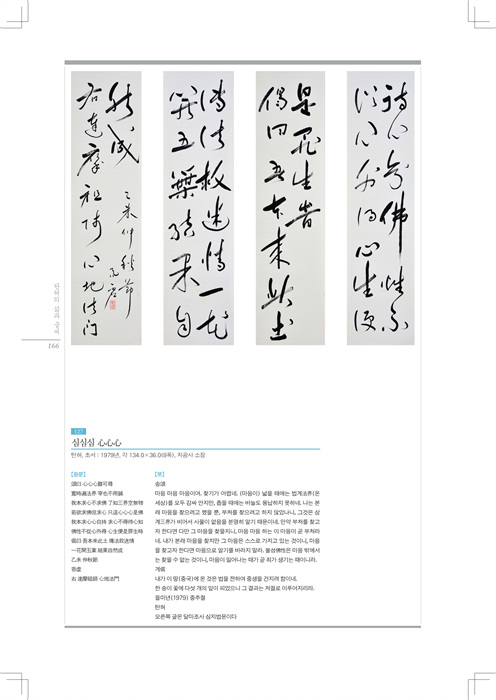 待心知佛性不
從心外得心生便
是罪生時
偈曰吾本來此土
傳法救迷情一花
開五葉結果自
然成
己未仲秋節
吞虛
右達摩祖師心地法門
탄허의 삶과 궁극
166
127
심심심 心心心
탄허, 초서 : 1979년, 각 134.0×36.0(8폭), 자광사 소장
【원문】
頌曰 心心心難可尋
寬時遍法界 窄也不用鍼
我本求心不求佛 了知三界空無物
若欲求佛但求心 只這心心心是佛
我本求心心自持 求心不得待心知
佛性不從心外得 心生便是罪生時
偈曰 吾本來此土 傳法救迷情
一花開五葉 結果自然成
乙未 仲秋節
吞虛
右 達摩祖師 心地法門
【뜻】
송頌
마음 마음 마음이여, 찾기가 어렵네. (마음이) 넓을 때에는 법계法界(온
세상)를 모두 감싸 안지만, 좁을 때에는 바늘도 용납하지 못하네. 나는 본
래 마음을 찾으려고 했을 뿐, 부처를 찾으려고 하지 않았나니, 그것은 삼
계三界가 비어서 사물이 없음을 분명히 알기 때문이네. 만약 부처를 찾고
자 한다면 다만 그 마음을 찾을지니, 마음 마음 하는 이 마음이 곧 부처라
네. 내가 본래 마음을 찾지만 그 마음은 스스로 가지고 있는 것이니, 마음
을 찾고자 한다면 마음으로 알기를 바라지 말라. 불성佛性은 마음 밖에서
는 찾을 수 없는 것이니, 마음이 일어나는 때가 곧 죄가 생기는 때이니라.
게偈
내가 이 땅(중국)에 온 것은 법을 전하여 중생을 건지려 함이네.
한 송이 꽃에 다섯 개의 잎이 피었으니 그 결과는 저절로 이루어지리라.
을미년(1979) 중추절
탄허
오른쪽 글은 달마조사 심지법문이다